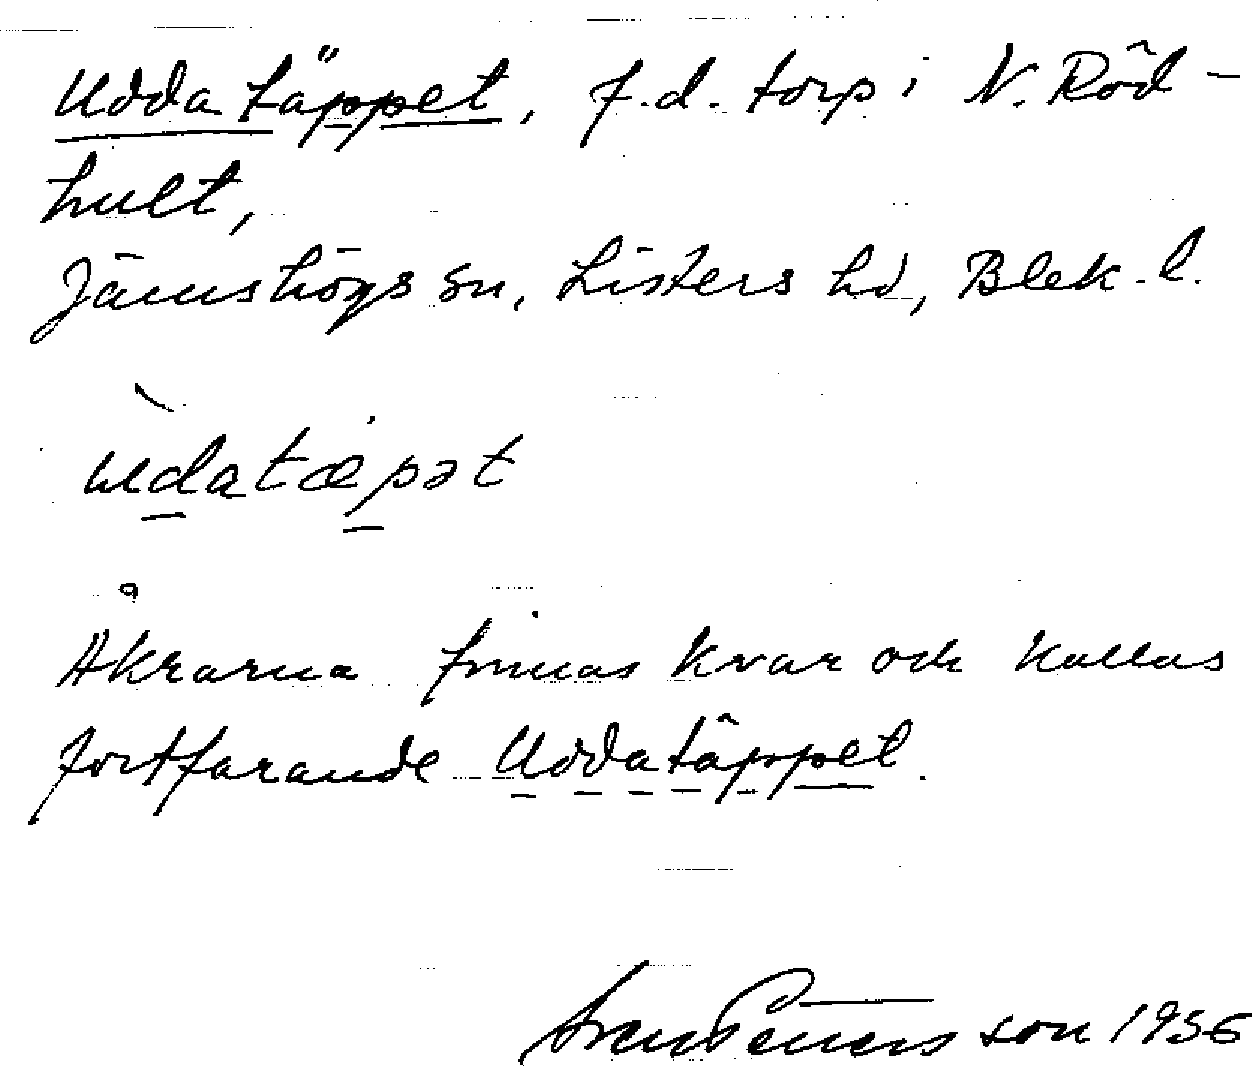 Uddatäppet, f.d. torp i N. Röd-
hult,
Jämshögs sn, Listers hd, Blek. l.
ùdatæpət
Åkrarna finnas kvar och kallas
fortfarande Uddatäppet.
Sven Petersson 1956